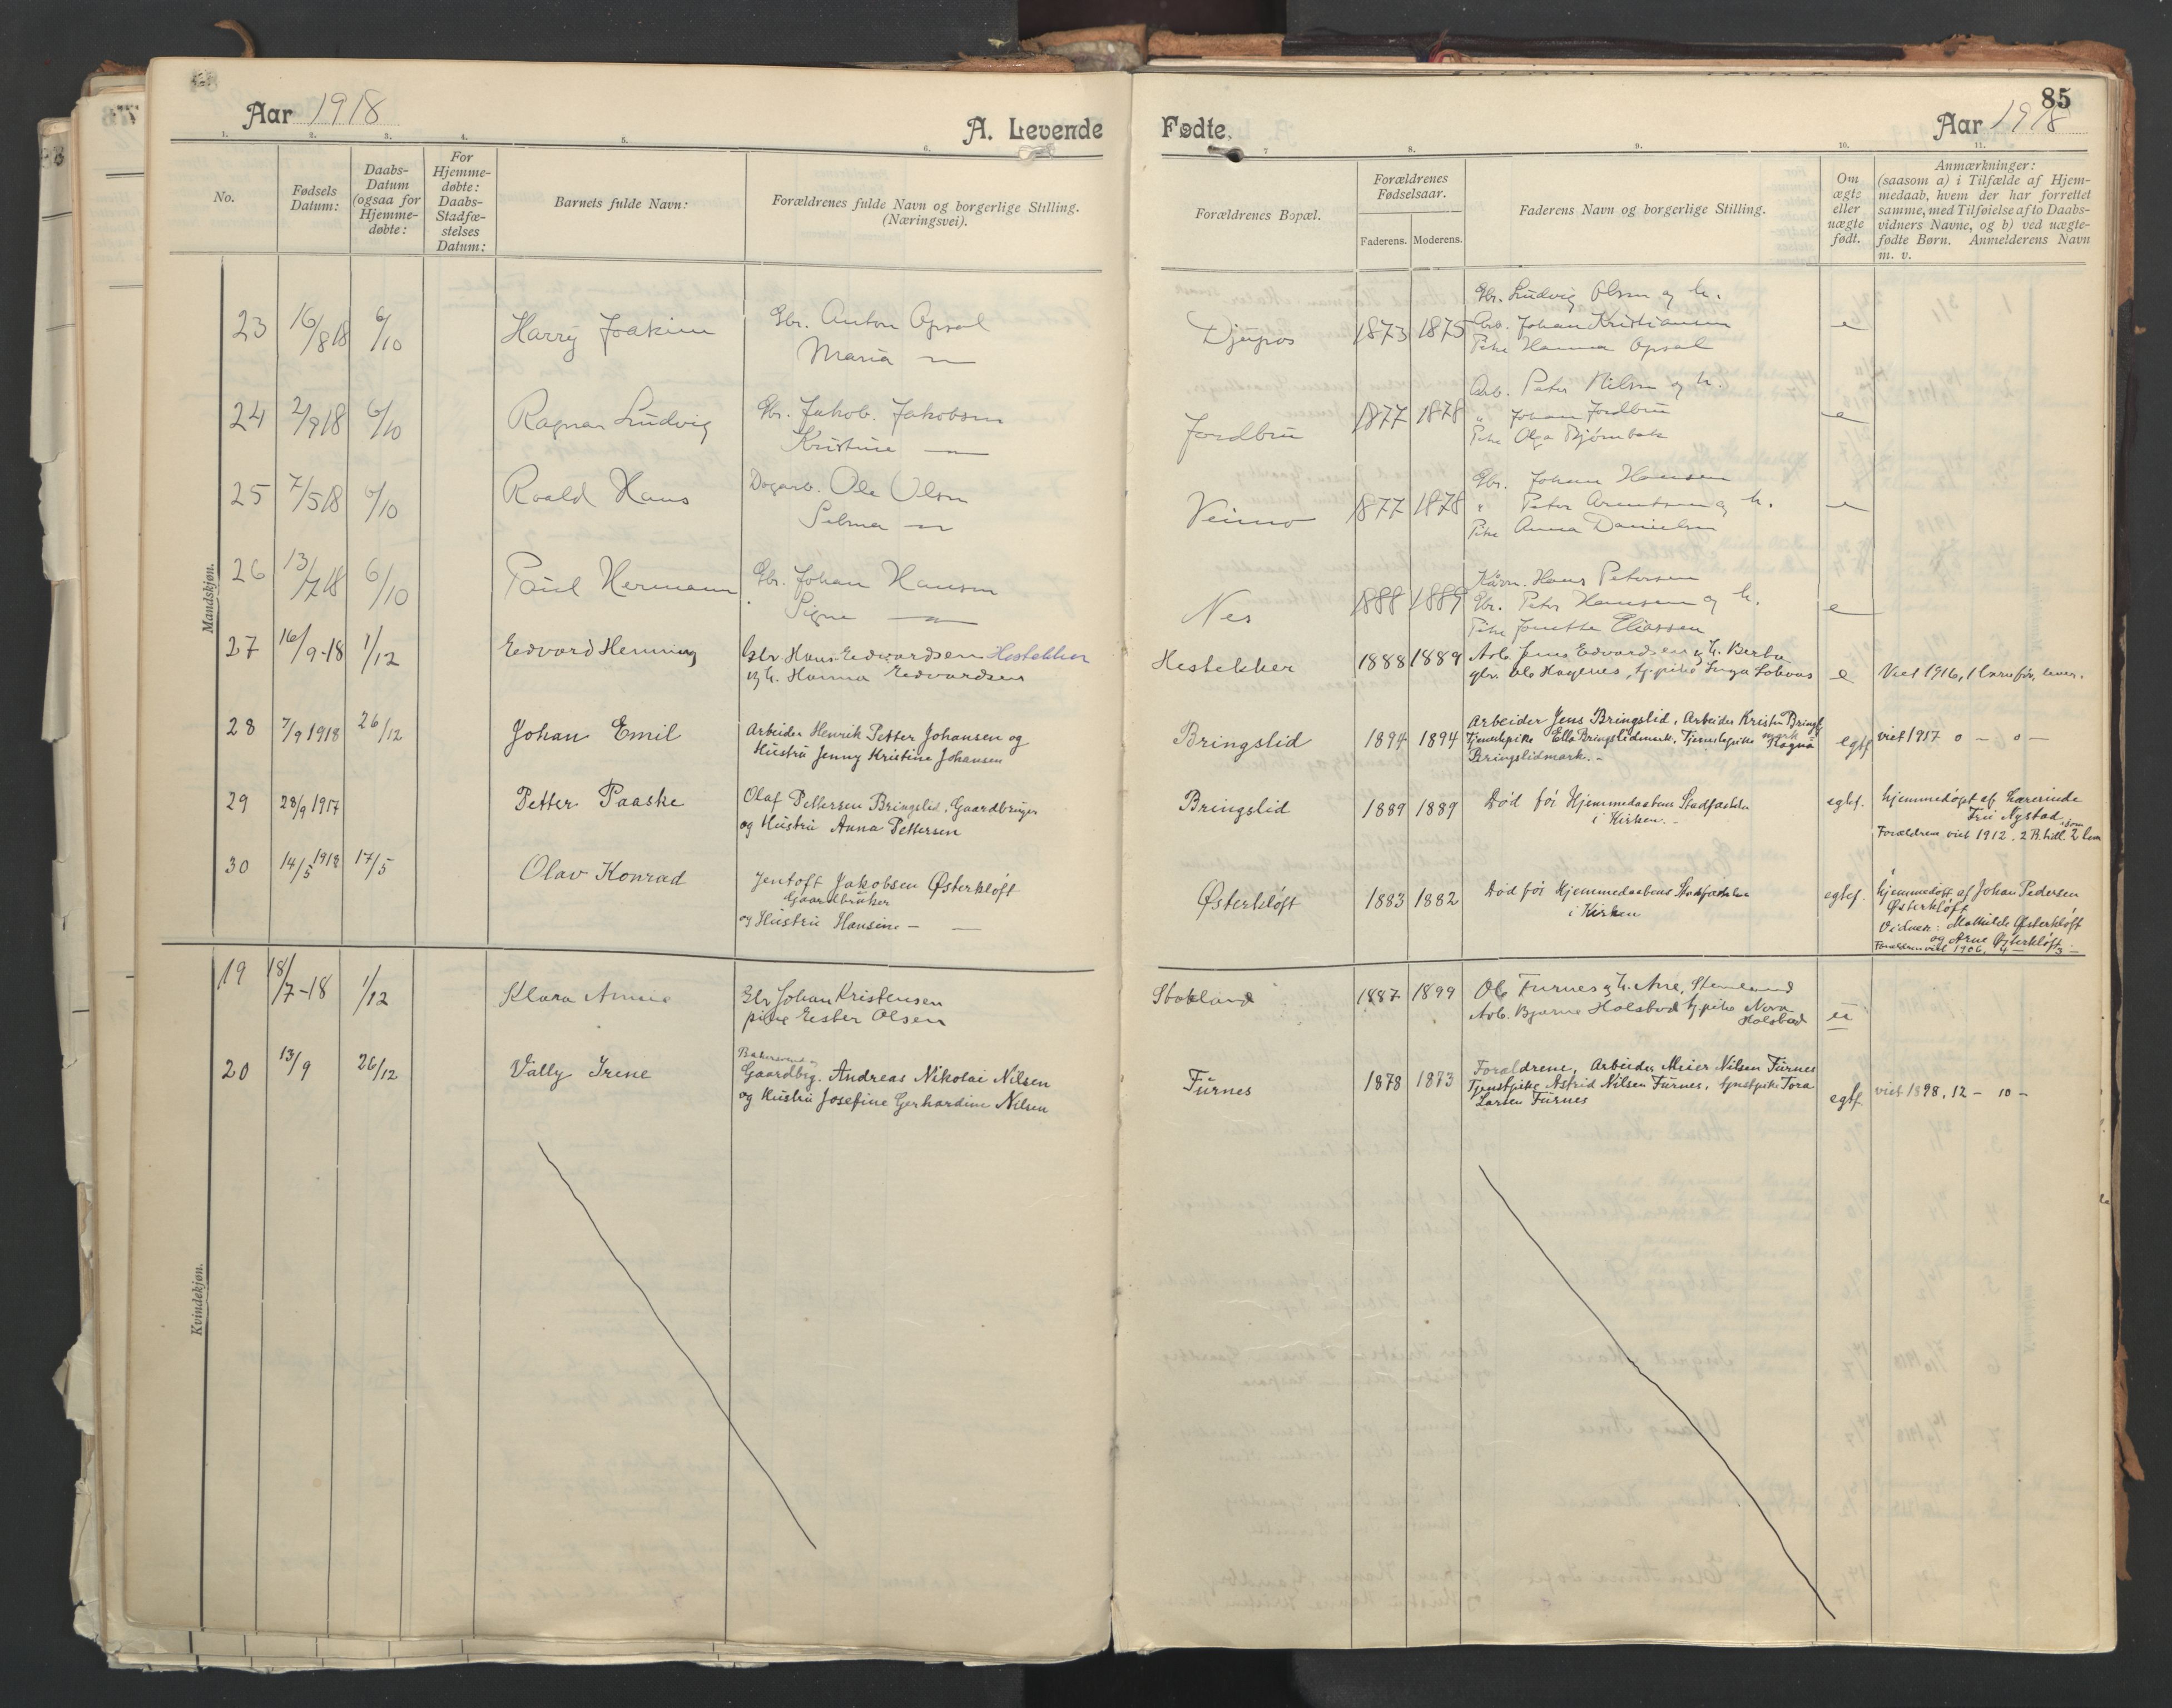 Aar 1918
A. Levende
Fødte.
Aar 1918
85
1. 2. 3. 4. 5. 6. 7 8. 9. 10. 11.
No.
Fødsels
Datum:
Daabs-
Datum
(ogsaa for
Hjemme-
døbte:
For
Hjemme-
døbte:
Daabs-
Stadfæ-
stelses
Datum:
Barnets fulde Navn:
Forældrenes fulde Navn og borgerlige Stilling.
(Næringsvei).
Forældrenes Bopæl.
Forældrenes
Fødselsaar.
Faderens. Moderens.
Faderens Navn og borgerlige Stilling.
Om
ægte
eller
uægte
født.
Anmærkninger:
(saasom a) i Tilfælde af Hjem-
medaab, hvem der har forrettet
samme, med Tilføielse af to Daabs-
vidners Navne, og b) ved uægte-
fødte Børn. Anmelderens Navn
m. v.
Mandskjøn.
23 16/8 18 6/10 Harry Joakim Gbr. Anton Opsal
Maria
Djupos 1873 1875 Gbr. Ludvig Olsen og h.
Arb. Johan Kristiansen
Pike Hanna Opsal
e
24 2/9 18 6/10 Ragnar Ludvig Gbr. Jakob. Jakobsen
Kristine
Jordbru 1877 1878 Arb. Peter Nilsen og h.
" Johan Jordbru
Pike Olga Bjørnbak
e
25 7/5 18 6/10 Roald Hans Dagarb. Ole Olsen
Selma
Veimo 1877 1878 Gbr. Johan Hansen
" Peter Arentsen og h.
Pike Anna Danielsen
e
26 13/7 18 6/10 Paul Hermann Gbr. Johan Hansen
Signe
Nes 1888 1889 Hans Petersen
Gbr. Peter Hansen og h.
Pike Jonette Eliassen
e
27 16/9-18 1/12 Edvard Henning Gbr Hans Edvardsen Hestekker
og h. Hanna Edvardsen
Hestekker 1888 1889 Arb. Jens Edvardsen og h. Berta
gbr. Ole Hagenes, tj.pike Inga
e Viet 1916, 1 barn før, lever.
28 7/9 1918 26/12 Johan Emil Arbeider Henrik Petter Johansen og
Hustru Jenny Kristine Johansen
Bringslid 1894 1894 Arbeider Jens Bringslid, Arbeider Kristen Bringsl.
Tjenstpike Ella Bringslidmark, Tjenstepike Ragna
mark
Bringslidmark. -
egtf viet 1917 0 - 0 -
29 28/9 1917 Petter Paaske Olaf Pettersen Bringslid, Gaardbruger
og Hustru Anna Pettersen
Bringslid 1889 1889 Død før Hjemmedaabens Stadfæstelse
i Kirken. -
egtf. hjemmedøpt af Lærerinde
Fru Nystad
Forældrene viet 1912. 2 B. tidl. 2 lever
30 14/5 1918 17/5 Olav Konrad Jentoft Jakobsen Østerkløft
Gaardbruker
og Hustru Hansine -
Østerkløft 1883 1882 Død før Hjemmedaabens Stadfæstelse
i Kirken
egtef. hjemmedøpt af Johan Pedersen
Østerkløft
Vidner: Mathilde Østerkløft
og Arne Østerkløft
Forældrene viet 1906, 4 - 3 -
Kvindekjøn.
19 18/7-18 1/12 Klara Annie Gbr Johan Kristensen
pike Ester Olsen
Stokland 1887 1899 Ole Furnes og h. Ane, Stemland
Arb. Bjarne Holsbad tj.pike Nora
Holsbad
u
20 13/9 26/12 Vally Irene Bakersvend og
Gaardbrg. Andreas Nikolai Nilsen
og Hustru Josefine Gerhardine Nilsen
Furnes 1878 1873 Forældrene, Arbeider Meier Nilsen Furnes
Tjenstpike Astrid Nilsen Furnes, tjenstpike Tora
Larsen Furnes
egtf. viet 1898, 12 - 10 -